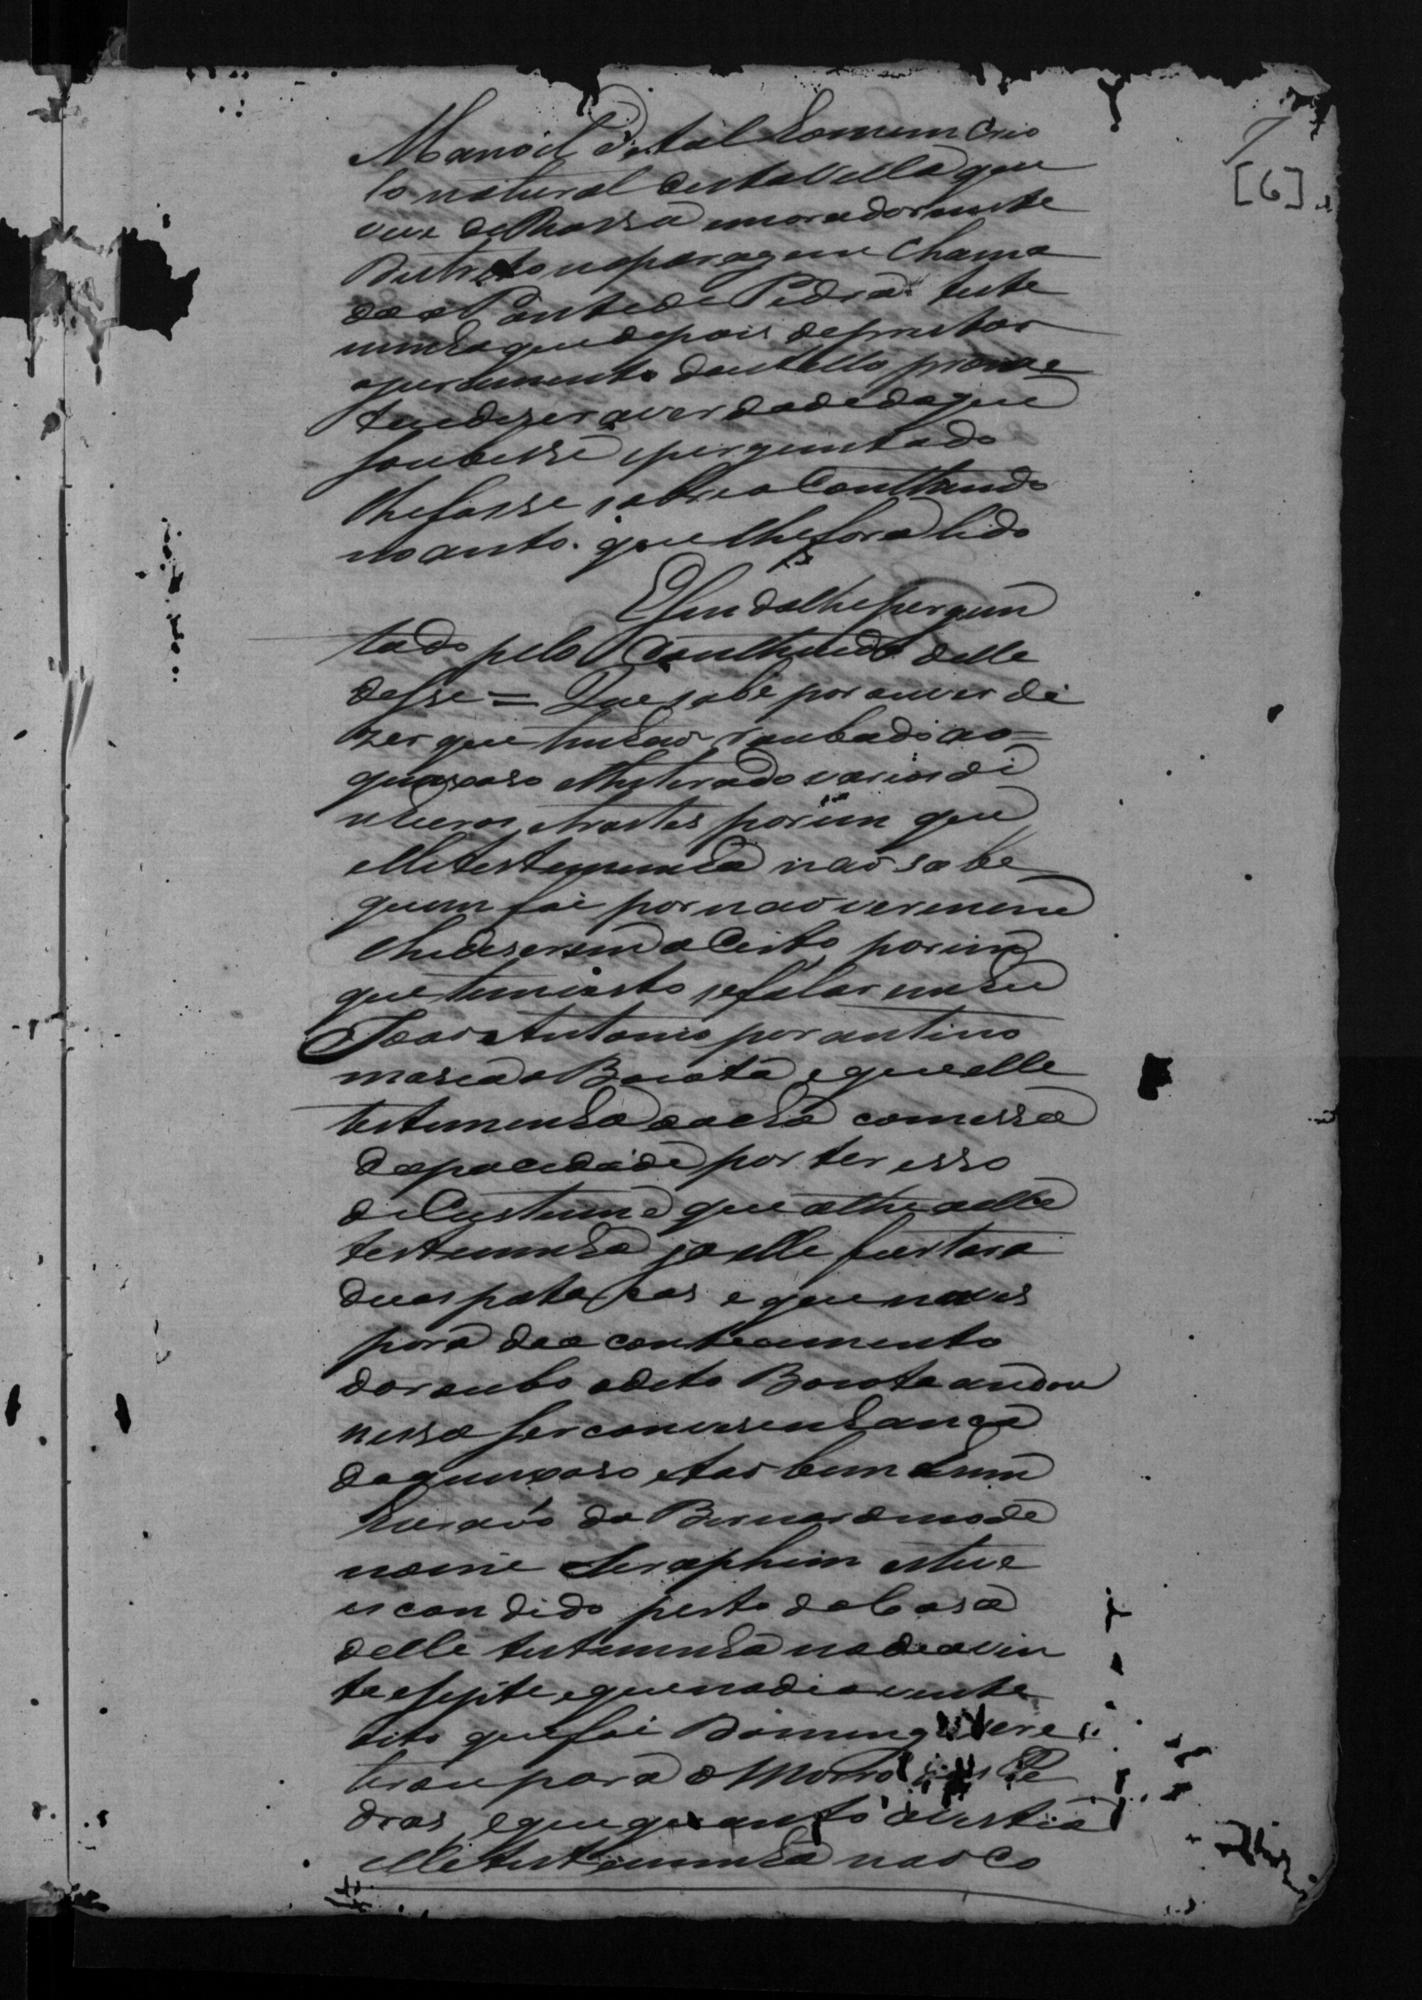 7
[6]
Manoel Vital homem Crio
lo natural desta Villa que
vive de Rossa morador neste
Destricto na paragem chama
da a Ponte de Pedra teste
munha que depois de prestar
o juramento dantello prome
teu dizer a verdade do que
soubesse e perguntado
lhe fosse sobre o Conthiudo
no auto que lhe fora lido
E sendo lhe pergun
tado pelo Conthiudo delle
disse = Que sabe por ouver di
zer que tinhão roubado ao
queixoso Machado varios di
nheiros e trastes porém que
elle testemunha não sabe
quem foi por não ver nem
lhe dizerem o Certo porem
que tem visto se falar em hu
João Antonio por antino
masia o Barata, e que elle
testemunha o acha com essa
capacidade por ter isso
de Custume que athe a elle
testemunha ja elle furtara
duas patacas e que na ves
pora do acontecimento
do roubo o dito Barata andou
nessa
do queixoso e tão bem hum
escravo do Bernardino de
nome Seraphim esteve
escondido perto da Casa
delle testemunha no dia vin
te e sepite, e que no dia vinte
oito que foi Domingo se re
tirou para o Morro das Pe
dras, e que quanto a
elle testemunha não co